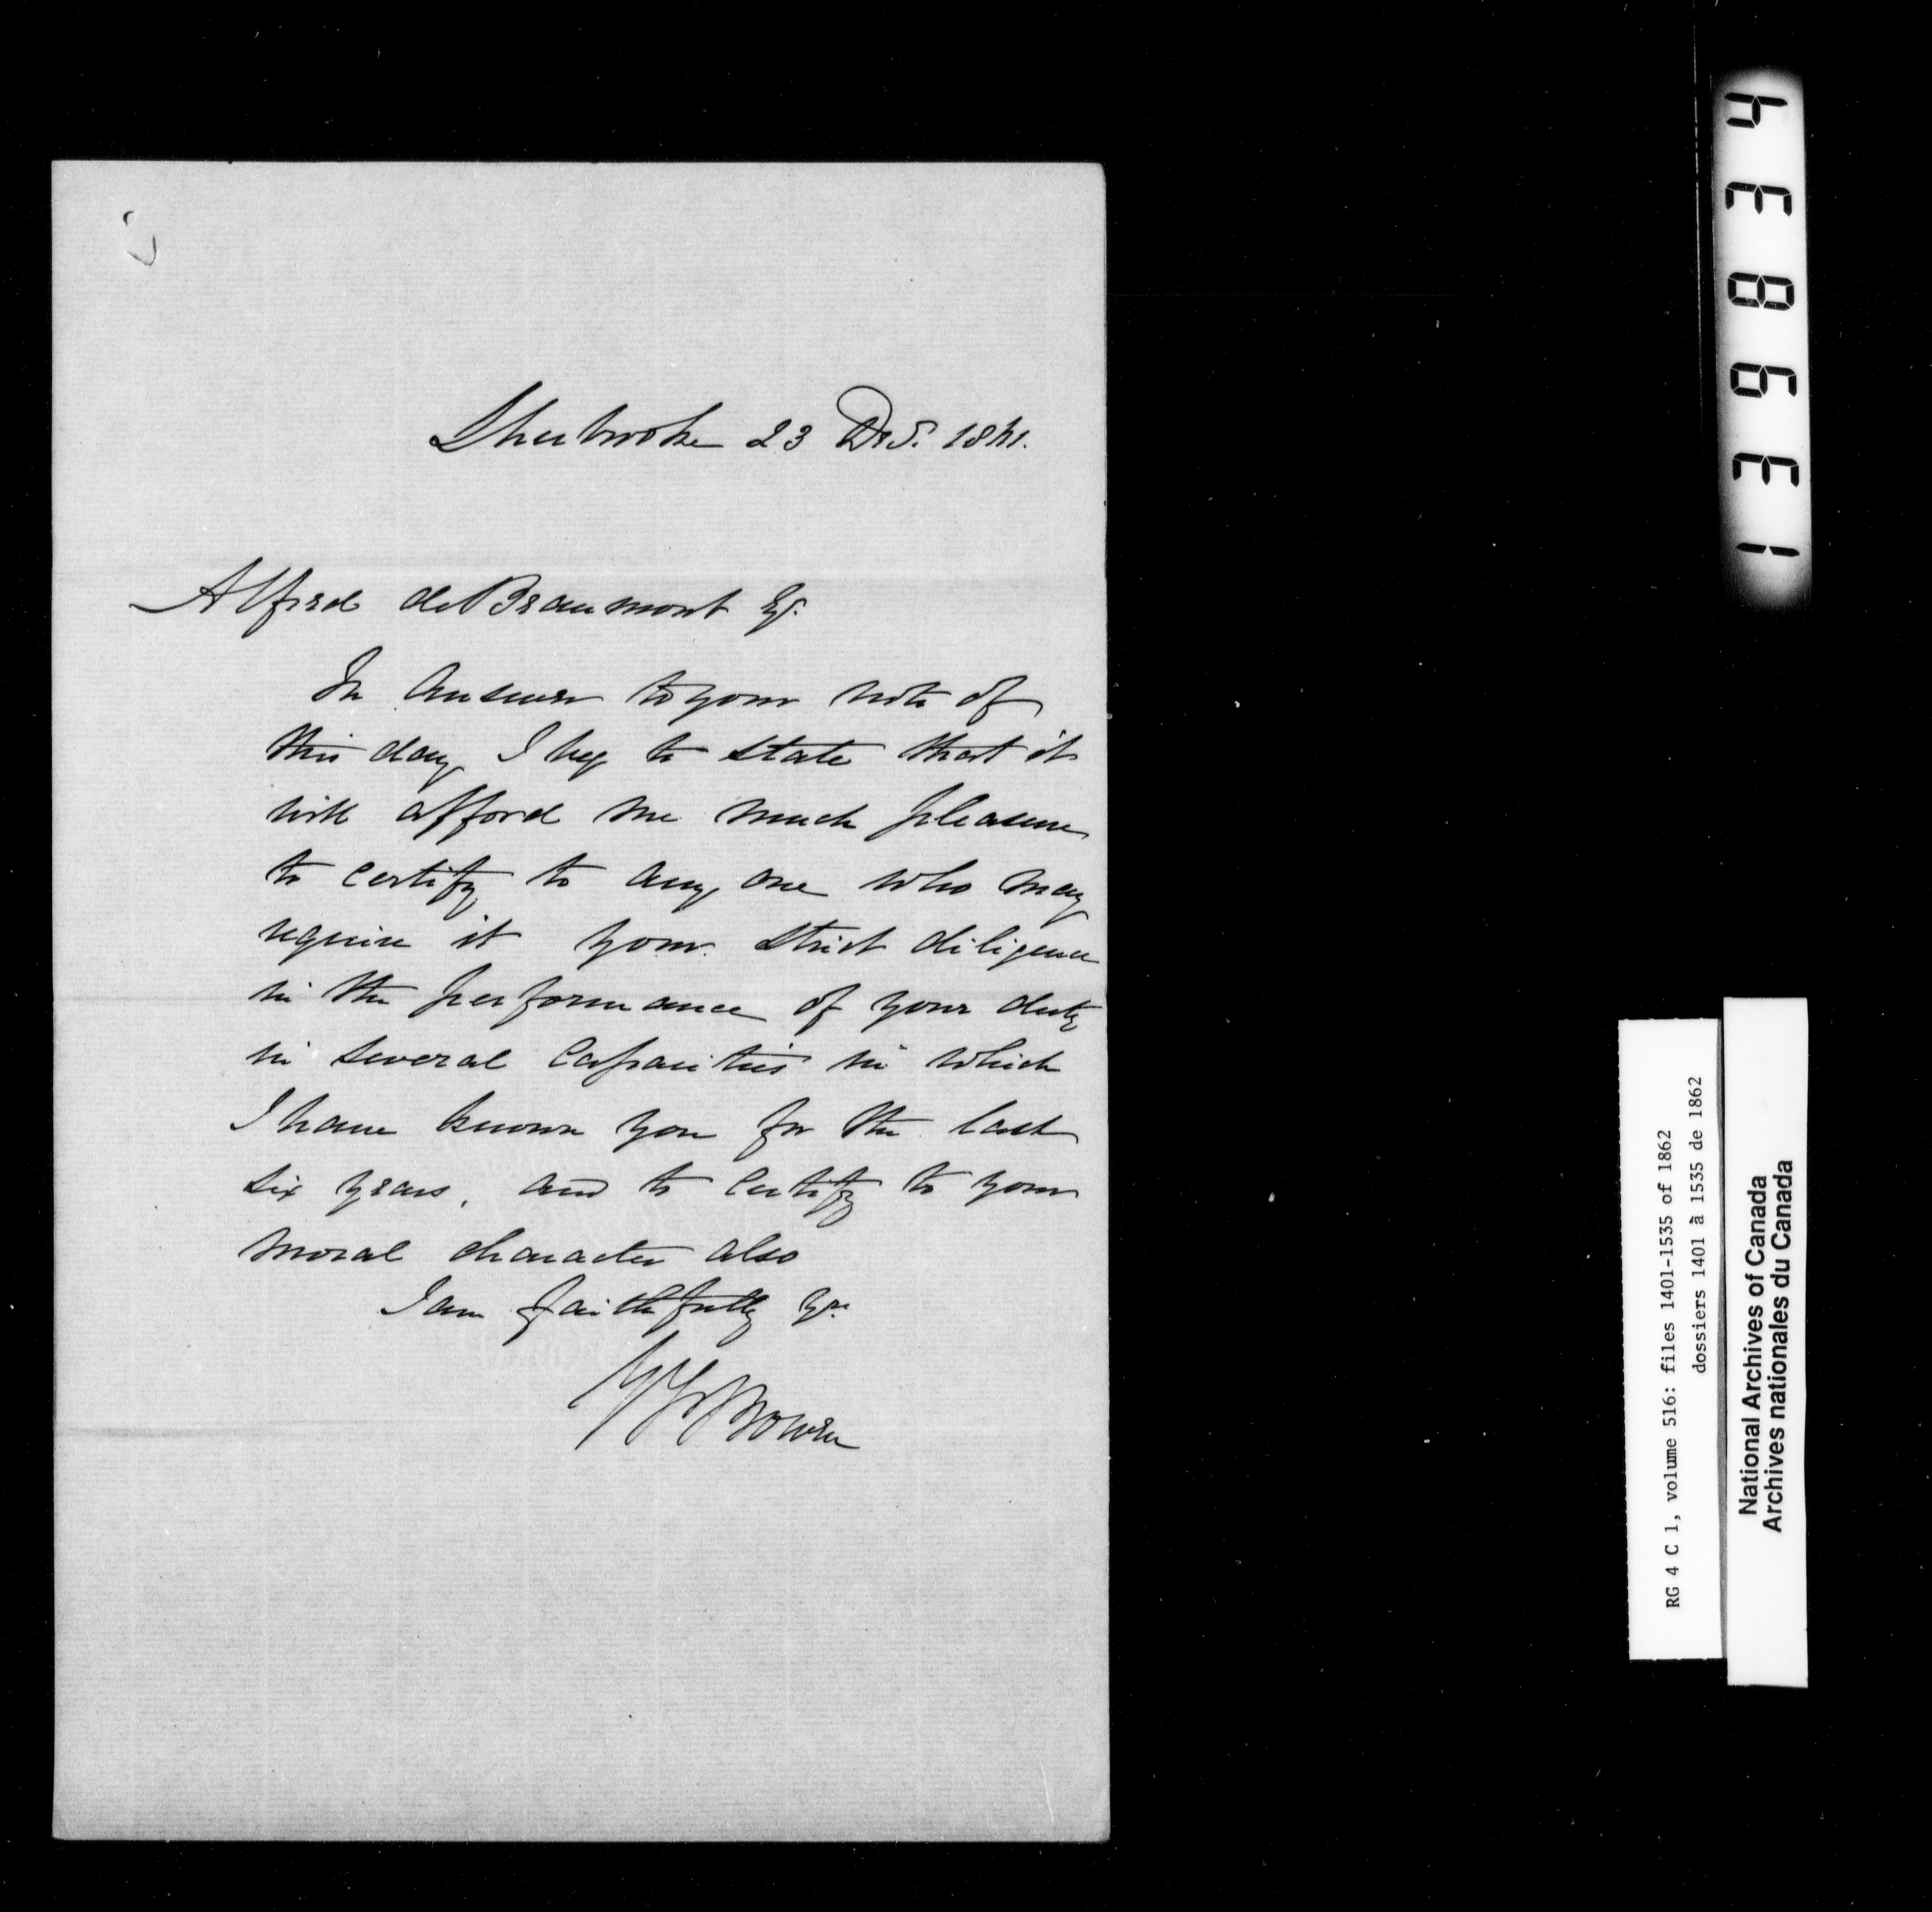 Sherbrooke 23 Dec. 1861.
Alfred de Beaumont Esq.
In answer to your note of
this day I beg to state that it
will afford me much pleasure
to certify to any one who may
require it your strict diligence
in the performance of your duty
in several capacities in which
I have known you for the last
six years, and to certify to your
moral character also
I am faithfully yrs.
Bowen
136834
RG 4 C 1, volume 516: files 1401-1535 of 1862
dossiers 1401 à 1535 de 1862
National Archives of Canada
Archives nationales du Canada